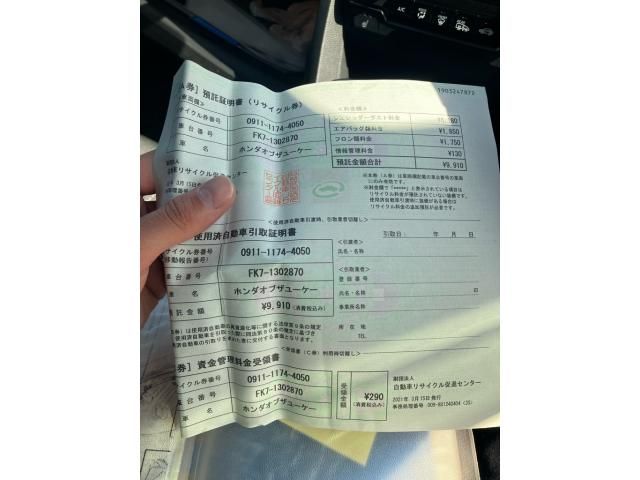 1903247872
A券] 預託証明書 (リサイクル券)
<車両欄>
<料金欄>
サイクル券番号 0911-1174-4050
車台番号 FK7-1302870
車名 ホンダオブザユーケー
シュレッダーダスト料金
エアバッグ類料金 ¥1,850
フロン類料金 ¥1,750
情報管理料金 ¥130
預託金額合計 ¥9,910
財団法人
自動車リサイクル促進センター
3月15日
<使用済自動車引渡時、引取業者切離し>
使用済自動車引取証明書
引取日: 年 月 日
サイクル券番号 0911-1174-4050
移動報告番号)
車台番号 FK7-1302870
車名 ホンダオブザユーケー
預託金額 ¥9,910 (消費税込み)
<引渡者>
氏名・名称
<引取業者>
登録番号
氏名・名称 印
事業所名称
所在地
TEL
券] 資金管理料金受領書
サイクル券番号 0911-1174-4050
車台番号 FK7-1302870
車名 ホンダオブザユーケー
受領金額 ¥290 (消費税込み)
財団法人
自動車リサイクル促進センター
2021年 3月15日発行
A/C